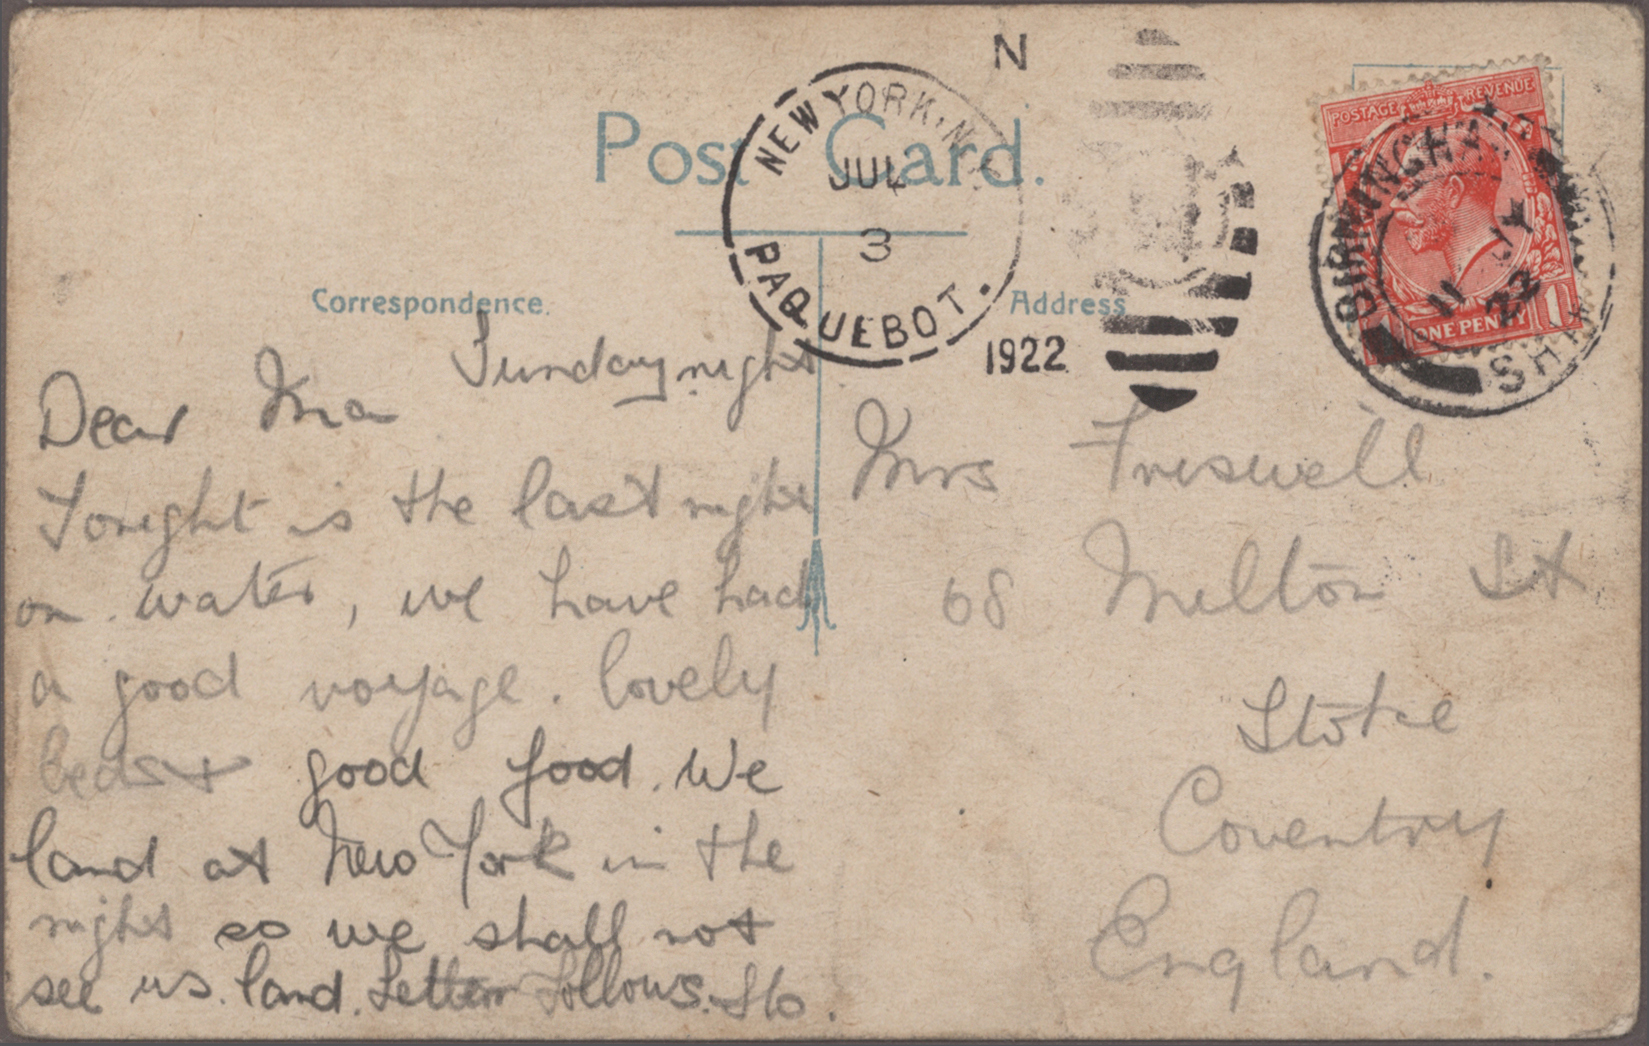 N
NEW YORK, N.Y.
JUL
3
PAQUEBOT.
1922
Post Card.
POSTAGE REVENUE
BIRMINGHAM
11 JY
22
1 ONE PENNY 1
Correspondence.
Address
Sunday night
Dear Ma
Tonight is the last night
on water, we have had
a good voyage. lovely
beds + good food. We
land at New York in the
night so we shall not
see us land. Letter follows. Flo.
Mrs Friswell
68 Melton St
Stoke
Coventry
England.